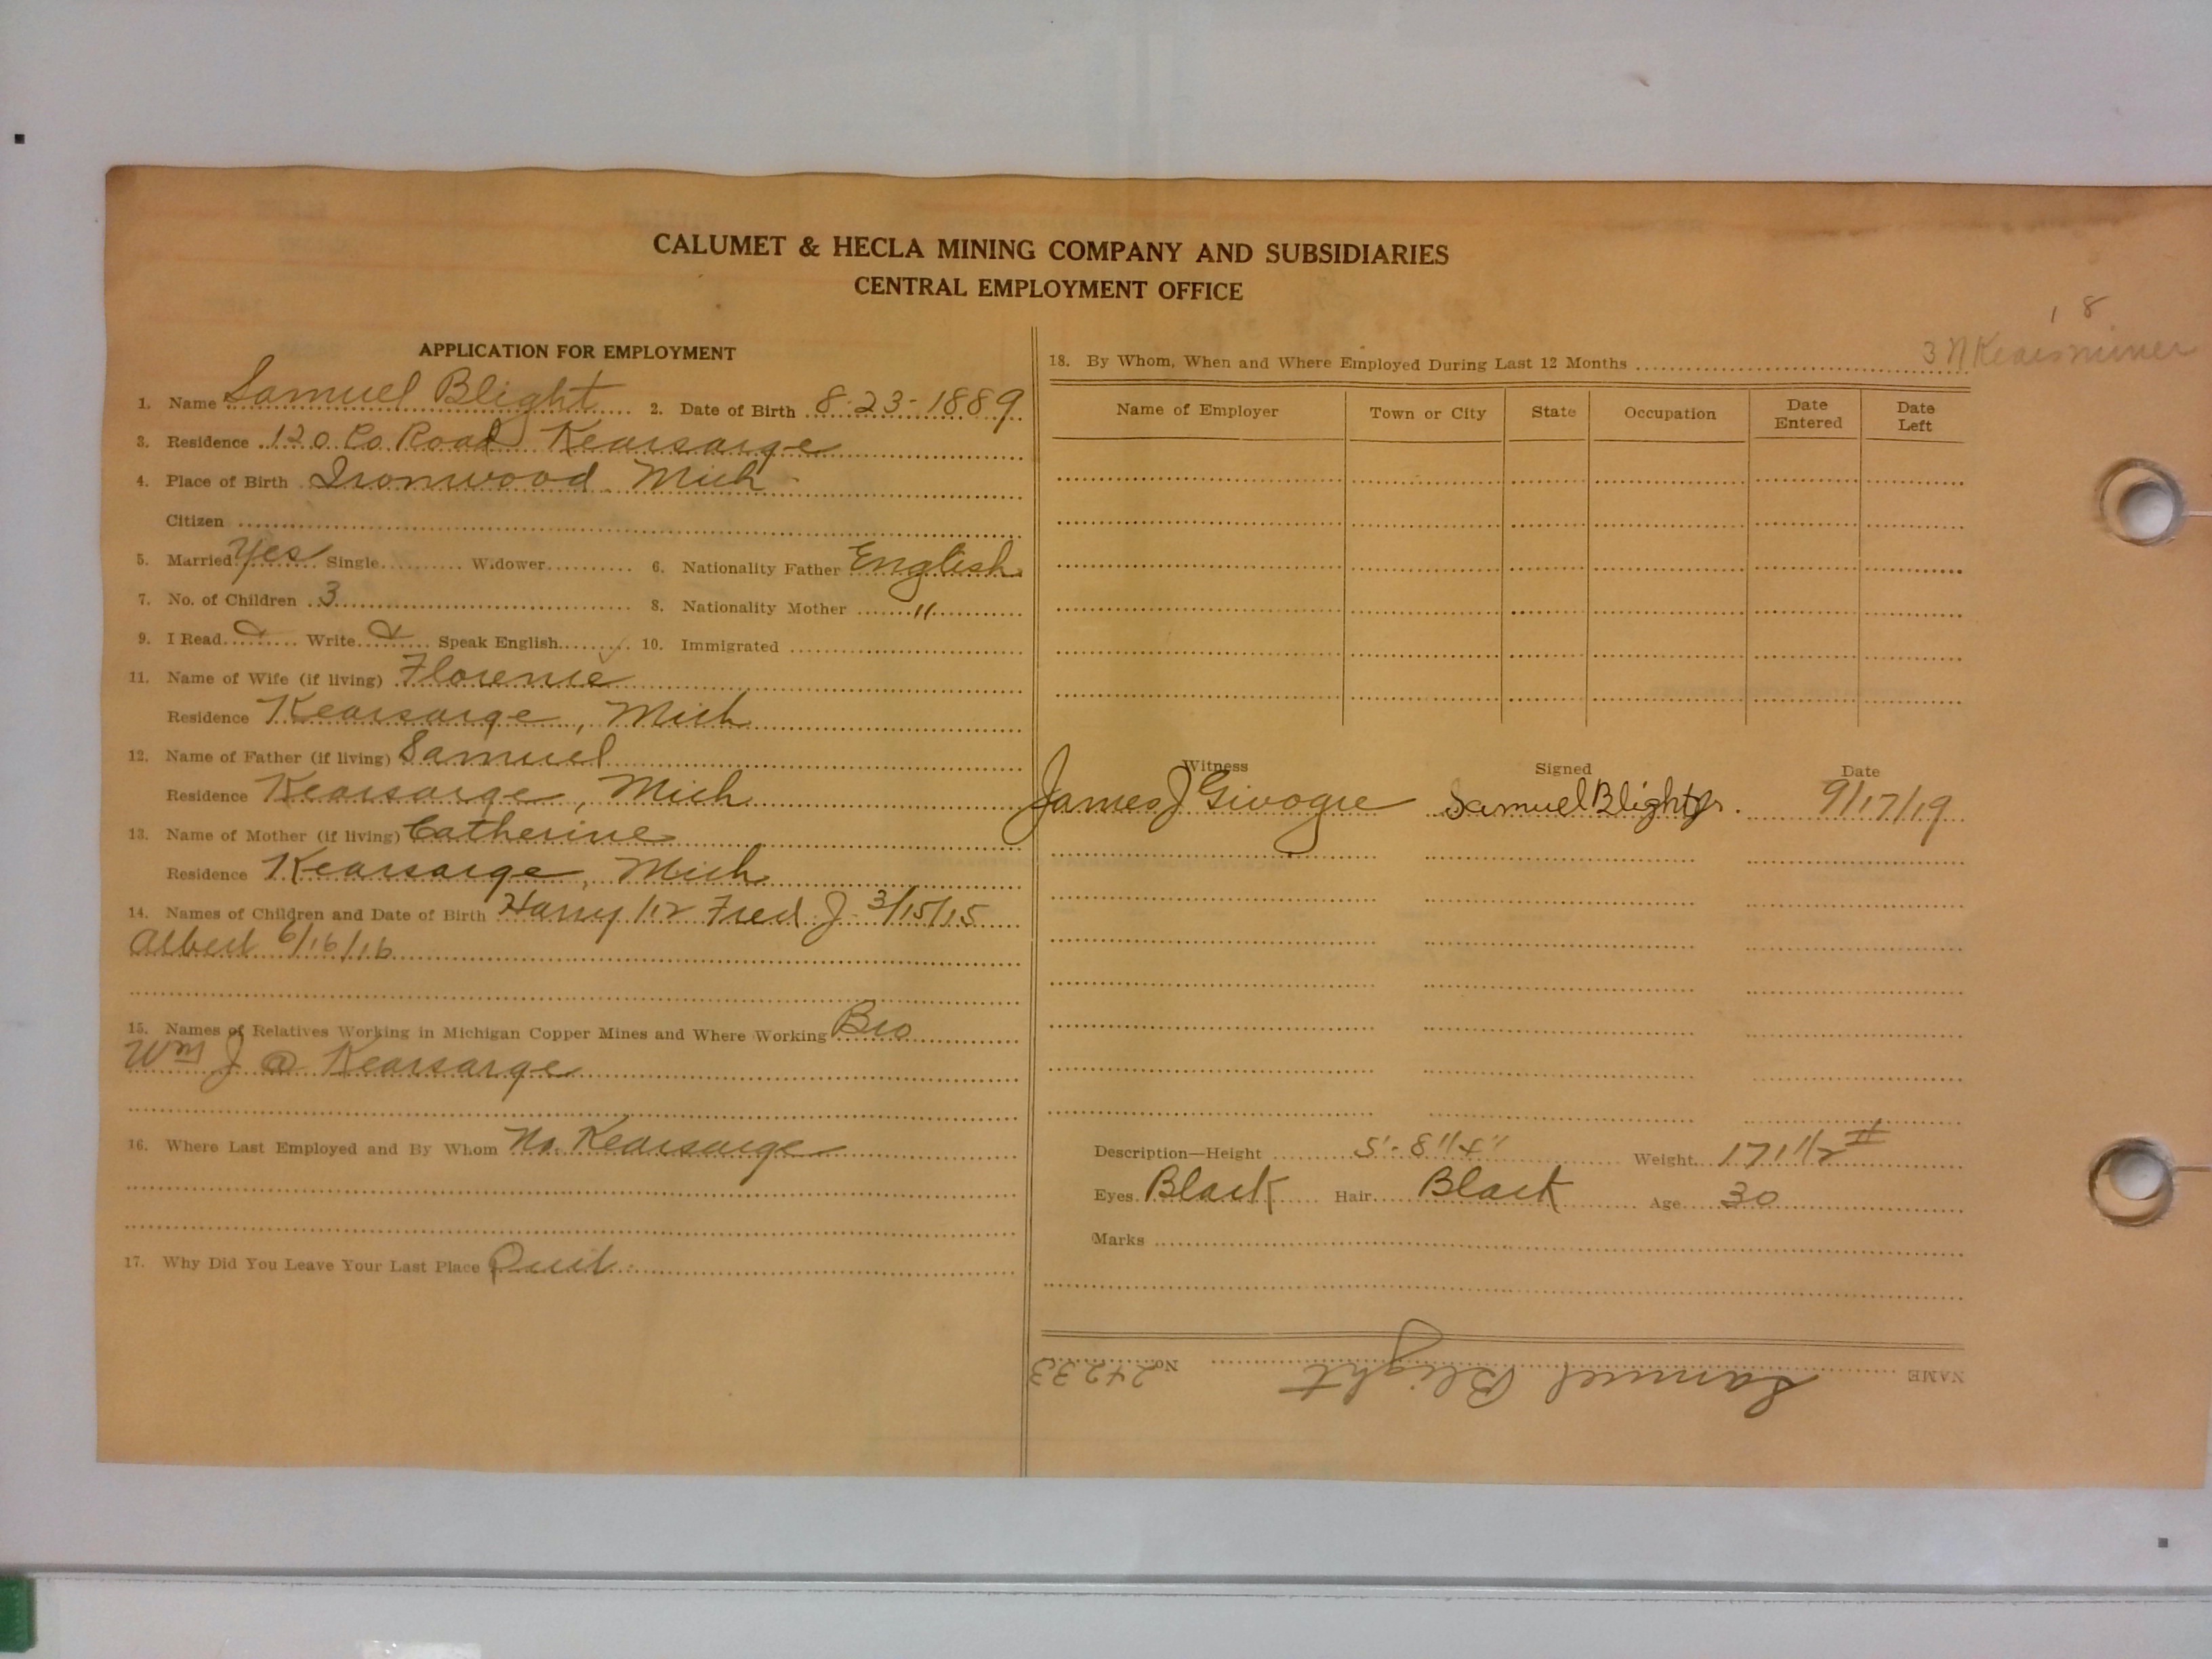 CALUMET & HECLA MINING COMPANY AND SUBSIDIARIES
CENTRAL EMPLOYMENT OFFICE
1 8
3 N Kears miner
APPLICATION FOR EMPLOYMENT
1. Name Samuel Blight 2. Date of Birth 8-23-1889
3. Residence 120 Co. Road Kearsarge
4. Place of Birth Ironwood Mich
Citizen
5. Married Yes Single Widower 6. Nationality Father English
7. No. of Children 3 8. Nationality Mother "
9. I Read Write Speak English ✓ 10. Immigrated
11. Name of Wife (if living) Florence
Residence Kearsarge, Mich
12. Name of Father (if living) Samuel
Residence Kearsarge, Mich
13. Name of Mother (if living) Catherine
Residence Kearsarge, Mich
14. Names of Children and Date of Birth Harry /12 Fred J 3/15/15
Albert 6/16/16
15. Names of Relatives Working in Michigan Copper Mines and Where Working Bro
Wm J @ Kearsarge
16. Where Last Employed and By Whom No. Kearsarge
17. Why Did You Leave Your Last Place Quit
18. By Whom, When and Where Employed During Last 12 Months
Name of Employer Town or City State Occupation Date Entered Date Left
Witness Signed Date
James J Samuel Blight Jr. 9/17/19
Description—Height 5'-8 1/4" Weight 171 1/2 #
Eyes Black Hair Black Age 30
Marks
NAME Samuel Blight No. 24233